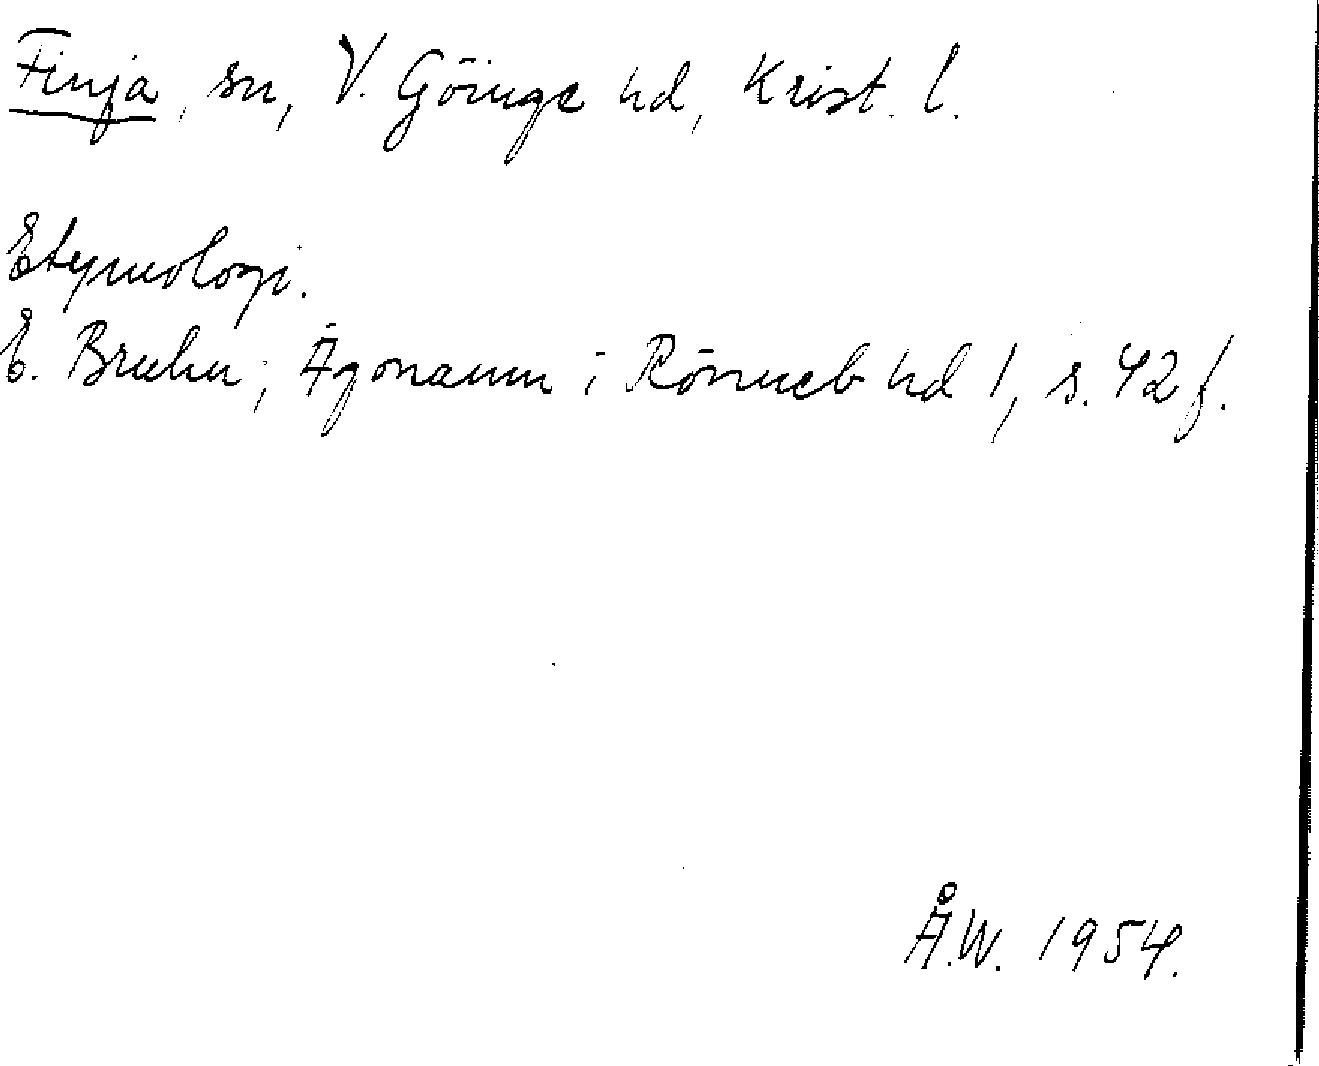 Finja, sn, V. Göinge hd, Krist. l.
Etymologi.
E. Bruhn, Ägonamn i Rönneb hd 1, s. 42 f.
Å.W. 1954.